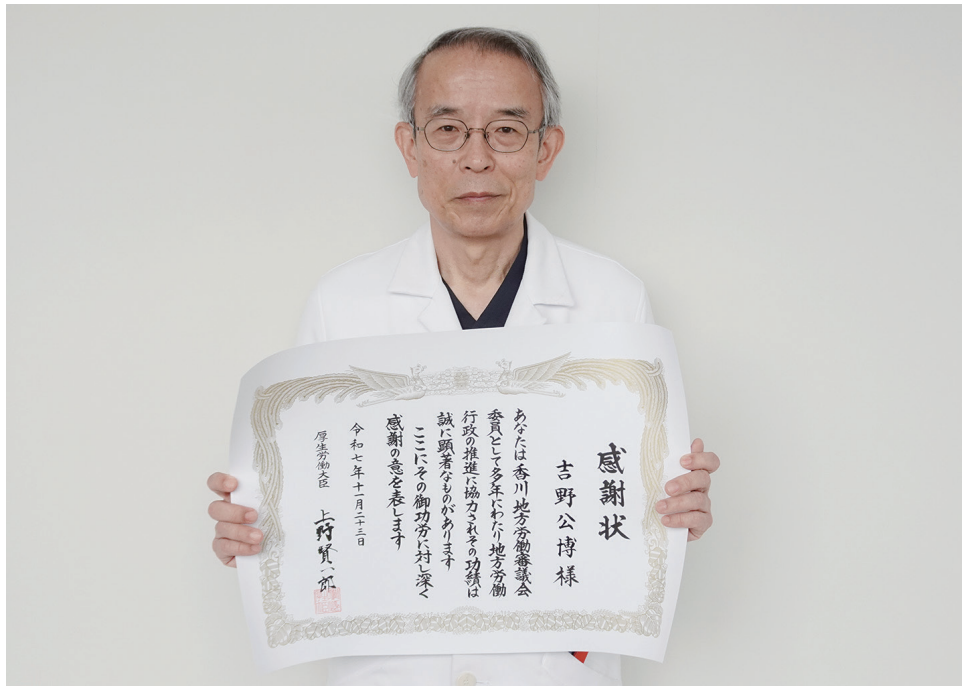 感謝状
吉野公博様
あなたは香川地方労働審議会
委員として多年にわたり地方労働
行政の推進に協力されその功績は
誠に顕著なものがあります
ここにその御功労に対し深く
感謝の意を表します
令和七年十一月二十三日
厚生労働大臣 上野賢一郎